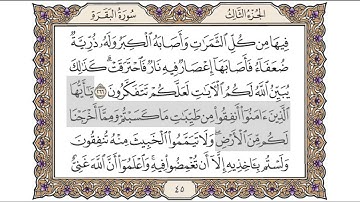 الجزء الثالث
سورة البقرة
فِيهَا مِن كُلِّ الثَّمَرَاتِ وَأَصَابَهُ الْكِبَرُ وَلَهُ ذُرِّيَّةٌ
ضُعَفَاءُ فَأَصَابَهَا إِعْصَارٌ فِيهِ نَارٌ فَاحْتَرَقَتْ ۗ كَذَٰلِكَ
يُبَيِّنُ اللَّهُ لَكُمُ الْآيَاتِ لَعَلَّكُمْ تَتَفَكَّرُونَ ٢٦٦ يَا أَيُّهَا
الَّذِينَ آمَنُوا أَنفِقُوا مِن طَيِّبَاتِ مَا كَسَبْتُمْ وَمِمَّا أَخْرَجْنَا
لَكُم مِّنَ الْأَرْضِ ۖ وَلَا تَيَمَّمُوا الْخَبِيثَ مِنْهُ تُنفِقُونَ
وَلَسْتُم بِآخِذِيهِ إِلَّا أَن تُغْمِضُوا فِيهِ ۚ وَاعْلَمُوا أَنَّ اللَّهَ غَنِيٌّ
٤٥